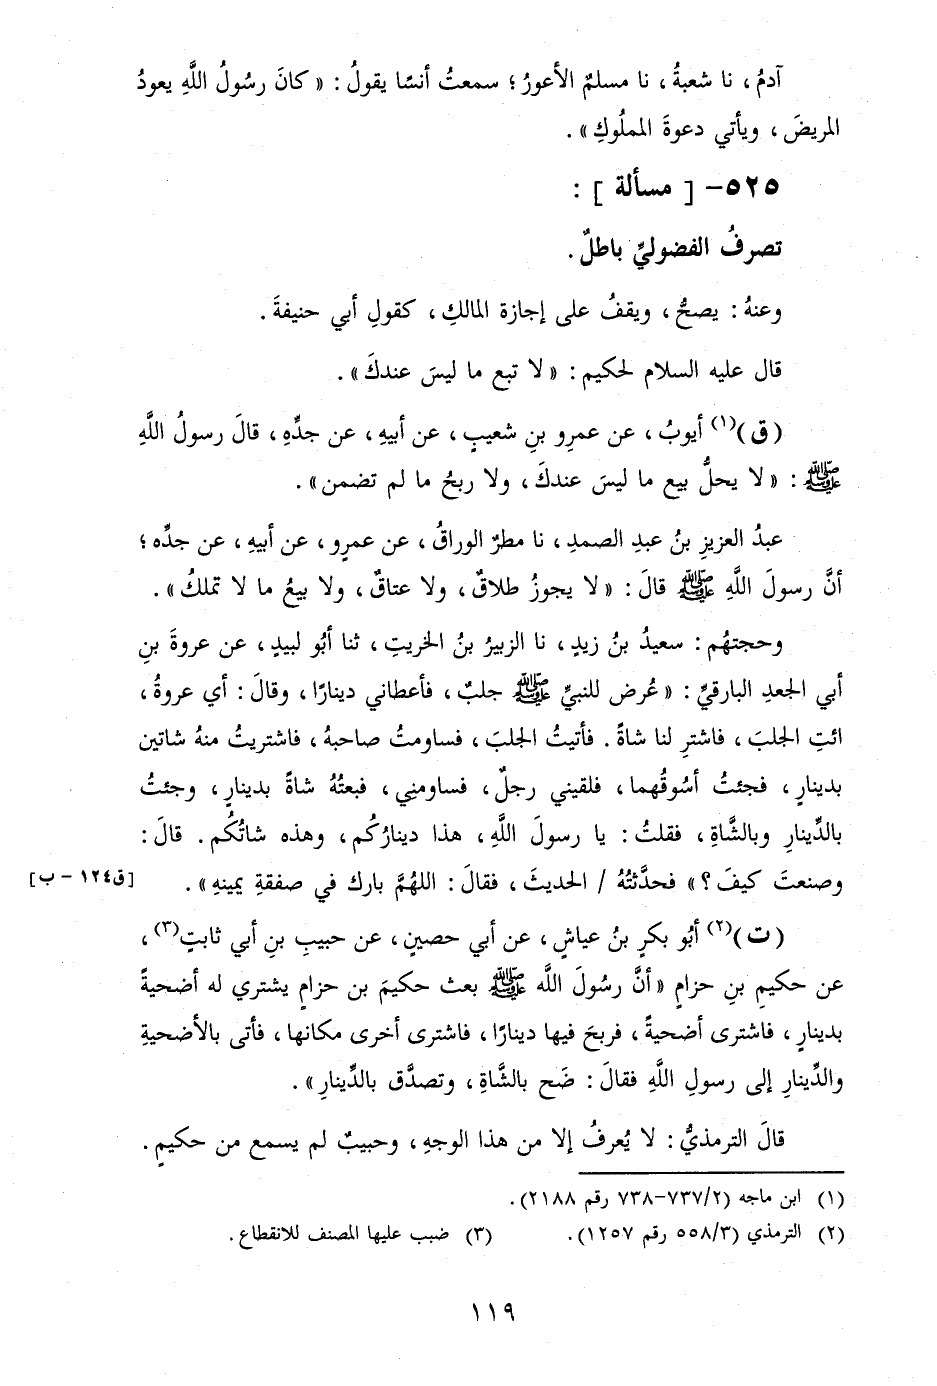 آدمُ، نا شعبةُ، نا مسلمٌ الأعورُ؛ سمعتُ أنسًا يقولُ: «كانَ رسُولُ اللَّهِ يعودُ
المريضَ، ويأتي دعوةَ المملُوكِ».
٥٢٥- [ مسألة ] :
تصرفُ الفضوليِّ باطلٌ.
وعنهُ: يصحُّ، ويقفُ على إجازة المالكِ، كقولِ أبي حنيفةَ.
قال عليه السلام لحكيم: «لا تبع ما ليسَ عندكَ».
(ق)(١) أيوبُ، عن عمرِو بنِ شعيبٍ، عن أبيهِ، عن جدِّهِ، قالَ رسولُ اللَّهِ
ﷺ: «لا يحلُّ بيع ما ليسَ عندكَ، ولا ربحُ ما لم تضمن».
عبدُ العزيزِ بنُ عبدِ الصمدِ، نا مطرٌ الوراقُ، عن عمرٍو، عن أبيهِ، عن جدِّه؛
أنَّ رسولَ اللَّهِ ﷺ قالَ: «لا يجوزُ طلاقٌ، ولا عتاقٌ، ولا بيعُ ما لا تملكُ».
وحجتهُم: سعيدُ بنُ زيدٍ، نا الزبيرُ بنُ الخريتِ، ثنا أبُو لبيدٍ، عن عروةَ بنِ
أبي الجعدِ البارقيِّ: «عُرض للنبيِّ ﷺ جلبٌ، فأعطاني دينارًا، وقالَ: أي عروةُ،
ائتِ الجلبَ، فاشترِ لنا شاةً. فأتيتُ الجلبَ، فساومتُ صاحبهُ، فاشتريتُ منهُ شاتين
بدينارٍ، فجئتُ أسُوقُهما، فلقيني رجلٌ، فساومنِي، فبعتُهُ شاةً بدينارٍ، وجئتُ
بالدِّينارِ وبالشَّاةِ، فقلتُ: يا رسولَ اللَّهِ، هذا دينارُكُم، وهذه شاتُكُم. قالَ:
وصنعتَ كيفَ؟» فحدَّثتُهُ / الحديثَ، فقالَ: اللهُمَّ بارك في صفقةِ يمينهِ». [ق١٢٤ - ب]
(ت)(٢) أبُو بكرٍ بنُ عياشٍ، عن أبي حصينٍ، عن حبيبِ بنِ أبي ثابتٍ(٣)،
عن حكيمِ بنِ حزامٍ «أنَّ رسُولَ اللَّه ﷺ بعث حكيمَ بن حزامٍ يشتري له أضحيةً
بدينارٍ، فاشترى أضحيةً، فربحَ فيها دينارًا، فاشترى أخرى مكانها، فأتى بالأضحيةِ
والدِّينارِ إلى رسولِ اللَّهِ فقالَ: ضَح بالشَّاةِ، وتصدَّق بالدِّينارِ».
قالَ الترمذيُّ: لا يُعرفُ إلا من هذا الوجهِ، وحبيبٌ لم يسمع من حكيمٍ.
(١) ابن ماجه (٧٣٧/٢-٧٣٨ رقم ٢١٨٨).
(٢) الترمذي (٥٥٨/٣ رقم ١٢٥٧). (٣) ضبب عليها المصنف للانقطاع.
١١٩